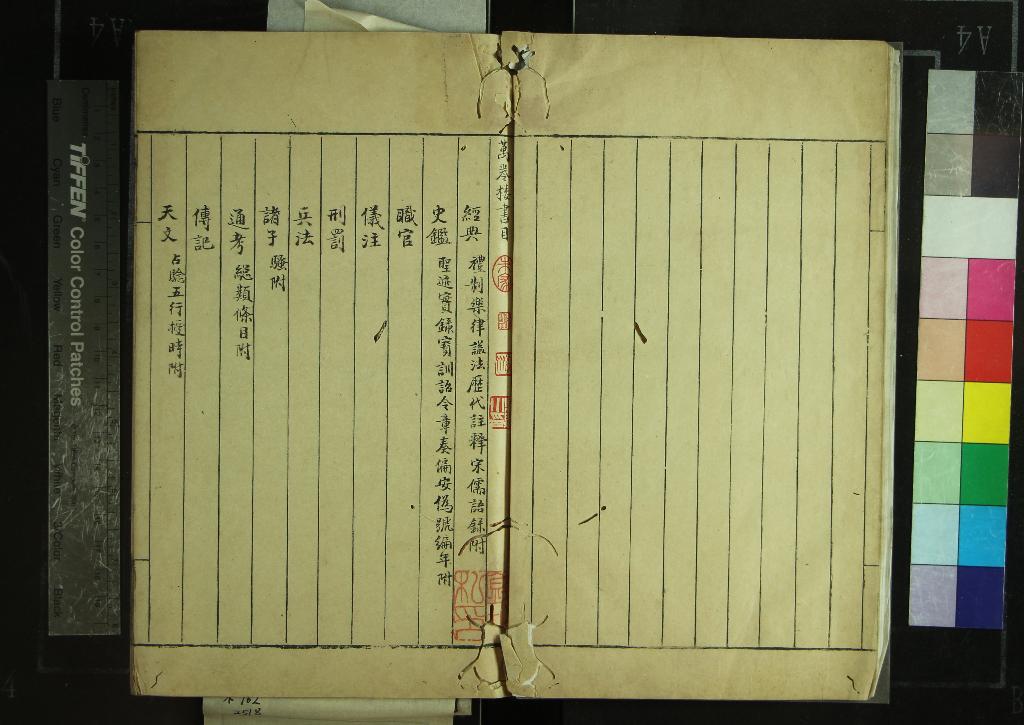 萬卷樓書目
經典 禮制樂律諡法歷代註釋宋儒語錄附
史鑑 聖道寶錄寶訓詔令章奏偏安偽號編年附
職官
儀注
刑罰
兵法
諸子 騷附
通考 總類條目附
傳記
天文 占騐五行授時附
TIFFEN Color Control Patches
Blue Cyan Green Yellow Red Magenta White 3/Color Black
A4
A4